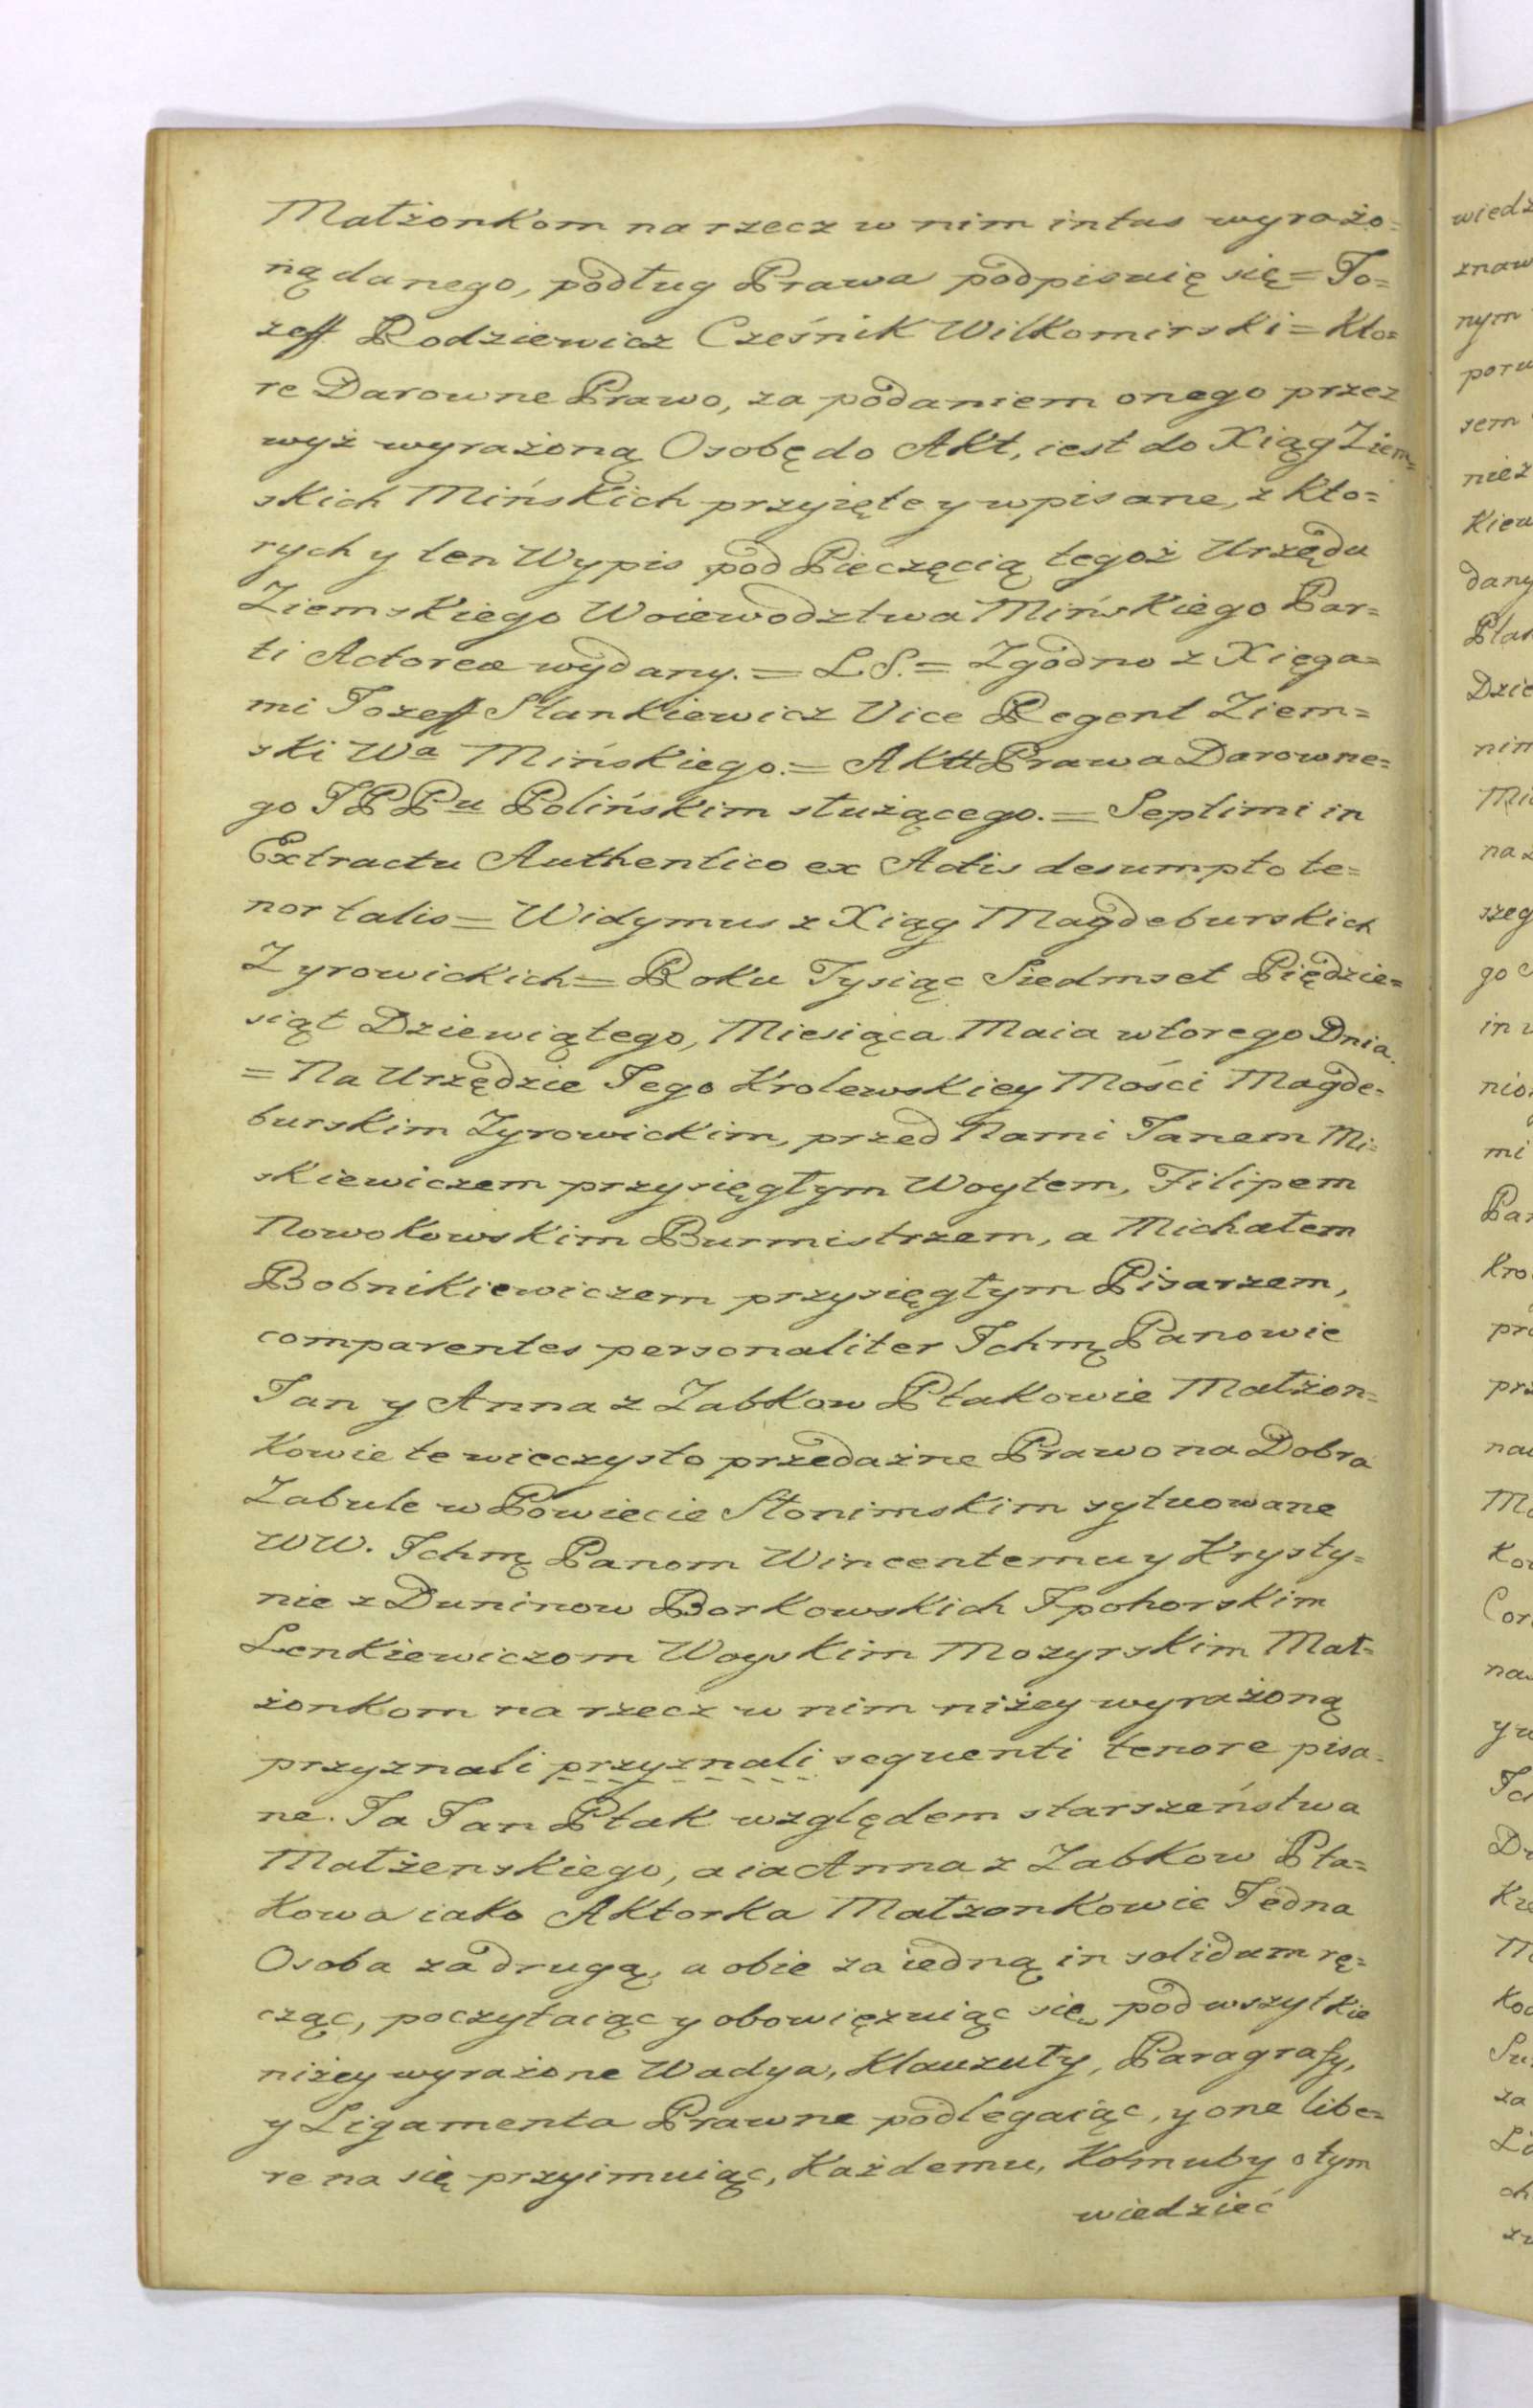 Małżonkom na rzecz w nim intus wyrażo=
ną danego, podług Prawa podpisuię się = Jo=
zeff Rodziewicz Cześnik Wiłkomirski = Kto=
re Darowne Prawo, za podaniem onego przez
wyż wyrażoną Osobę do Akt, iest do Xiąg Ziem=
skich Mińskich przyięte y wpisane, z Kto=
rych y ten Wypis pod Pieczęcią tegoż Urzędu
Ziemskiego Woiewodztwa Mińskiego Par=
ti Actoreæ wydany. = L.S. = Zgodno z Xięga=
mi Jozeff Stankiewicz Vice Regent Ziem=
ski Wa Mińskiego. = Aktt Prawa Darowne=
go JPPu Polińskim służącego. = Septimi in
Extractu Authentico ex Actis desumpto te=
nor talis = Widymus z Xiąg Magdeburskich
Zyrowickich = Roku Tysiąc Siedmset Piędzie=
siąt Dziewiątego, Miesiąca Maia wtorego Dnia.
= Na Urzędzie Jego Krolewskiey Mości Magde=
burskim Zyrowickim, przed Nami Janem Mi=
skiewiczem przysięgłym Woytem, Filipem
Nowokowskim Burmistrzem, a Michałem
Bobnikiewiczem przysięgłym Pisarzem,
comparentes personaliter Jchmę Panowie
Jan y Anna z Zabkow Ptakowie Małżon=
Kowie te wieczysto przedażne Prawo na Dobra
Zabule w Powiecie Słonimskim sytuowane
WW. Jchmę Panom Wincentemu y Krysty=
nie z Duninow Borkowskich Jpohorskim
Lenkiewiczom Woyskim Mozyrskim Mał=
żonkom na rzecz w nim niżey wyrażoną
przyznali przyznali sequenti tenore pisa=
ne. Ja Jan Ptak względem starszeństwa
Małżenskiego, a ia Anna z Zabkow Pta=
Kowa iako Aktorka Małzonkowie Jedna
Osoba za drugą, a obie za iedną in solidum rę=
cząc, poczytaiąc y obowięzuiąc się, pod wszytkie
niżey wyrażone Wadya, Klauzuły, Paragrafy,
y Ligamenta Prawne podlegaiąc, y one libe=
re na się przyimuiąc, Każdemu, Komuby o tym
wiedzieć